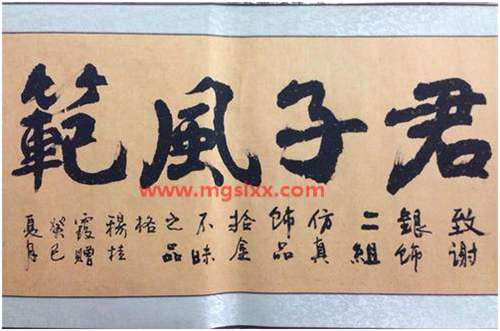 君子風範
www.mgslxx.com
致谢
銀飾
二組
仿真
飾品
拾金
不昧
之品
格
楊桂
霞赠
癸巳
夏月